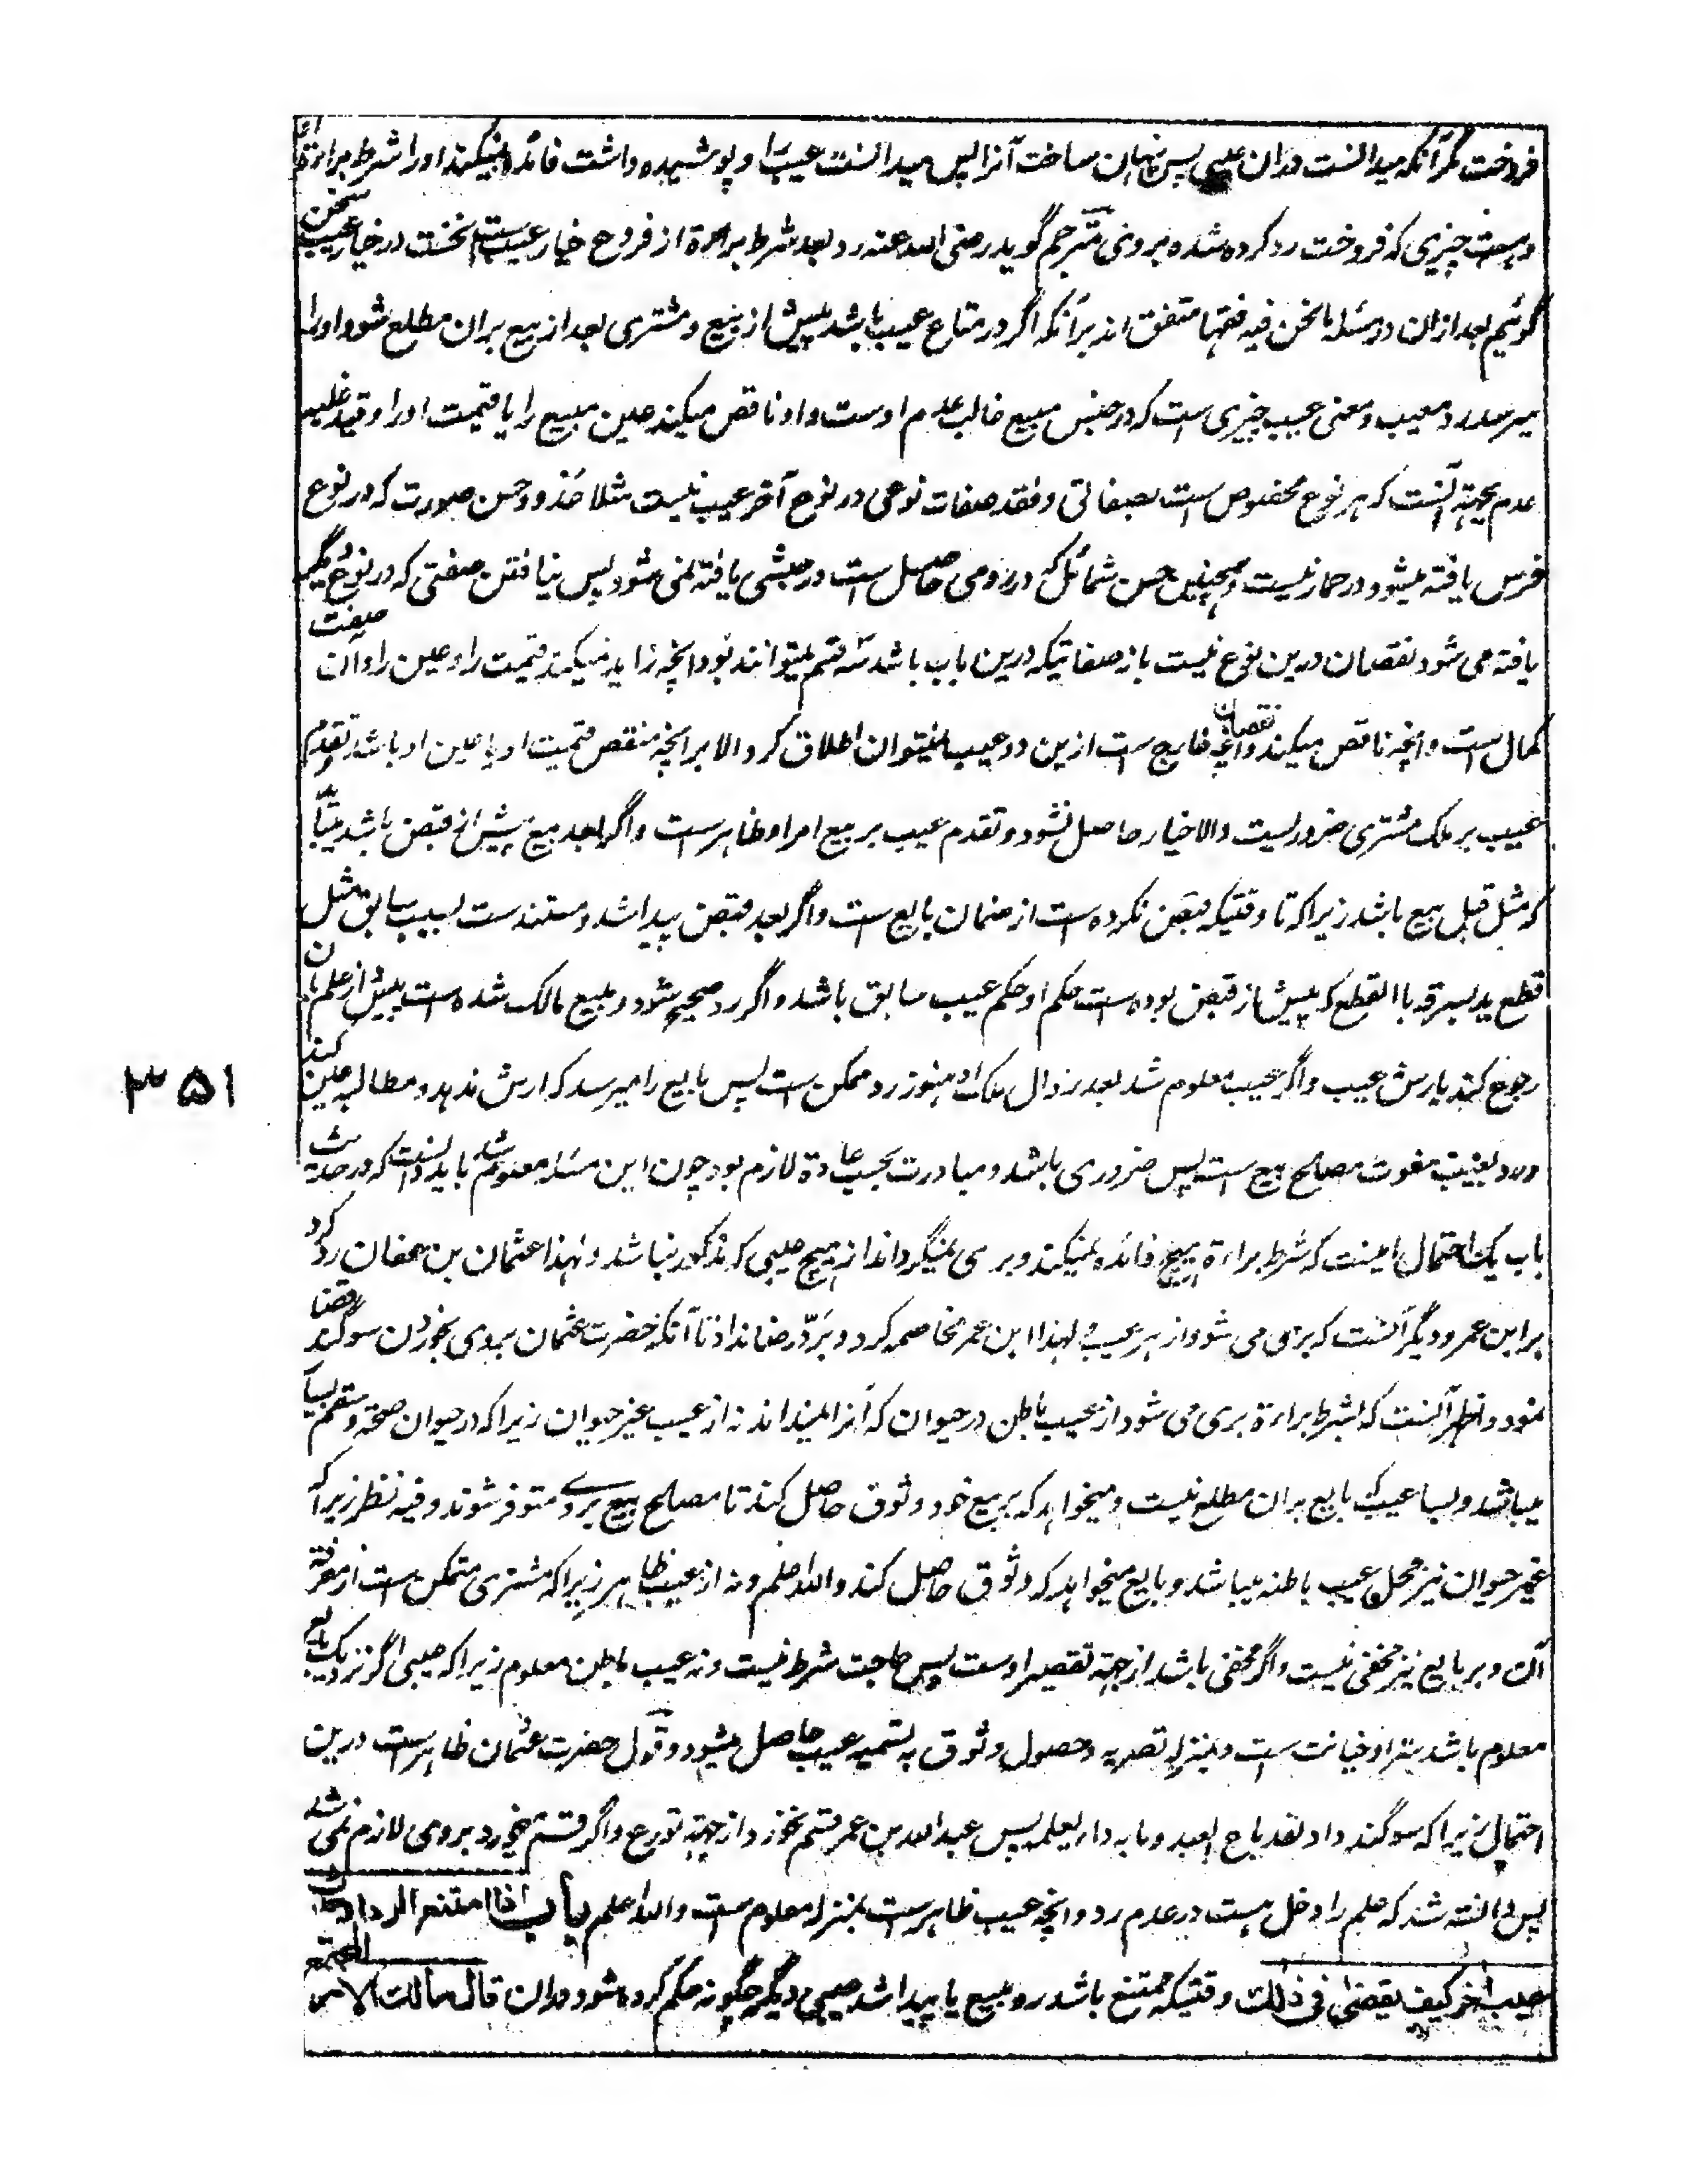 فروخت مگر آنکه میدانست دران عیبی پس پنهان ساخت آنرا پس میدانست عیب را و پوشیده داشت فائده نمیکند او را شرط براءة
و هست چیزی که فروخت رد کرده شده بروی مترجم گوید رضی الله عنه رد بعد شرط براءة از فروع خیار عیب ست نخست در خیار عیب سخن
گوئیم بعد ازان در مسئله ما نحن فیه فقها متفق اند برآنکه اگر در متاع عیب باشد پیش از بیع و مشتری بعد از بیع بران مطلع شود او را
میرسد رد معیب و معنی عیب چیزی ست که در جنس مبیع غالب عدم اوست و او ناقص میکند عین مبیع را یا قیمت او را و قید غلبه
عدم بجهة آنست که هر نوع مخصوص ست بصفاتی و فقد صفات نوعی در نوع آخر عیب نیست مثلا حسن صورت که در نوع
فرس یافته میشود در حمار نیست و همچنین حسن شمائل که در رومی حاصل ست در حبشی یافته نمی شود پس نیافتن صفتی که در نوع دیگر
یافته می شود نقصان درین نوع نیست باز صفاتیکه درین باب باشد سه قسم میتوانند بود آنچه زاید میکند قیمت را و عین را و آن صفت
کمال ست و آنچه ناقص میکند و آن نقصان ست و آنچه خارج ست ازین دو عیب نمیتوان اطلاق کرد الا برآنچه منقص قیمت او یا عین او باشد و تقدم
عیب بر ملک مشتری ضروریست والا خیار حاصل نشود و تقدم عیب بر بیع امر او ظاهرست و اگر بعد بیع پیش از قبض باشد
که مثل قبل بیع باشد زیرا که تا وقتیکه قبض نکرده ست از ضمان بایع ست و اگر بعد قبض پیدا شد و مستندست بسبب سابق مثل
قطع ید بسرقه پس حکم او حکم عیب سابق باشد و اگر رد صحیح شود و مبیع مالک شده ست پیش از علم بآن
رجوع کند بارش عیب و اگر عیب معلوم شد بعد زوال ملک او هنوز رد ممکن ست پس بایع را میرسد که ارش ندهد و مطالبه عین کند
ورد بعیب مفوت مصلح بیع ست پس ضروری باشد و مبادرت بحسب عادة لازم بود چون این مسئله معلوم شد باید دانست که در حدیث
باب یک احتمال اینست که شرط براءة هیچ فائده نمیکند و بری نمیگرداند از هیچ عیبی که مذکور نباشد ولهذا عثمان بن عفان رد کرد
بر ابن عمر و دیگر آنست که بری می شود از هر عیب و لهذا ابن عمر مخاصمه کرد و برد رضا نداد تا آنکه حضرت عثمان بروی بخوردن سوگند قضا
نمود و اظهر آنست که بشرط براءة بری می شود از عیب باطن در حیوان که آنرا نمیداند نه از عیب غیر حیوان زیرا که در حیوان صحة و سقم بسیار
میباشد و بسا عیب که بایع بران مطلع نیست و میخواهد که بر بیع خود وثوق حاصل کند تا مصلح بیع بروی متوفر شوند و فیه نظر زیرا که
غیر حیوان نیز محل عیب باطنه میباشد و بایع میخواهد که وثوق حاصل کند والله اعلم و نه از عیب ظاهر زیرا که مشتری متمکن ست از معرفة
آن و بر بایع نیز مخفی نیست و اگر مخفی باشد از جهة تقصیر اوست پس حاجت شرط نیست و نه عیب باطن معلوم زیرا که عیبی اگر نزدیک بایع
معلوم باشد ستر او خیانت ست و بمنزله تصریه و حصول وثوق به تسمیه عیب حاصل میشود و قول حضرت عثمان ظاهرست درین
احتمال زیرا که سوگند داد لقد باع العبد و ما به داء یعلمه پس عبدالله بن عمر قسم نخورد از جهة تورع و اگر قسم میخورد بروی لازم نمی شد
پس دانسته شد که علم را دخل هست در عدم رد و آنچه عیب ظاهرست بمنزله معلوم ست والله اعلم باب اذا امتنع الرد او حدث
عیب آخر کیف یقضی فی ذلک وقتیکه ممتنع باشد رد مبیع یا پیدا شد عیبی دیگر چگونه حکم کرده شود دران قال مالک الامر المجتمع
۳۵۱